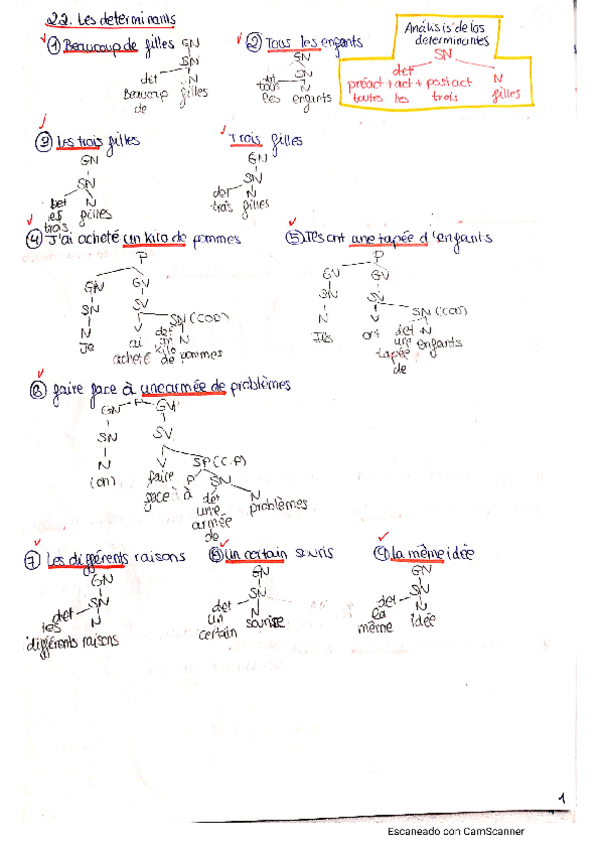 2.2. Les determinants
① Beaucoup de filles
GN
SN
det N
Beaucoup filles
de
② Tous les enfants
GN
SN
det N
tous
les enfants
Análisis de los
determinantes
SN
det N
préact + act + postact
toutes les trois filles
③ Les trois filles
GN
SN
det N
les filles
trois
Trois filles
GN
SN
det N
trois filles
④ J'ai acheté un kilo de pommes
P
GN GV
SN SV
N V SN (COD)
Je ai det N
acheté un
kilo
de pommes
⑤ Ils ont une tapée d'enfants
P
GN GV
SN SV
N V SN (COD)
Ils ont det N
une enfants
tapée
de
⑥ faire face à une armée de problèmes
GN P GV
SN SV
N V SP (C.P)
(on) faire P SN
face à à det N
une problèmes
armée
de
⑦ Les différents raisons
GN
SN
det N
les
différents raisons
⑧ Un certain souris
GN
SN
det N
un souris
certain
⑨ La même idée
GN
SN
det N
la idée
même
1
Escaneado con CamScanner